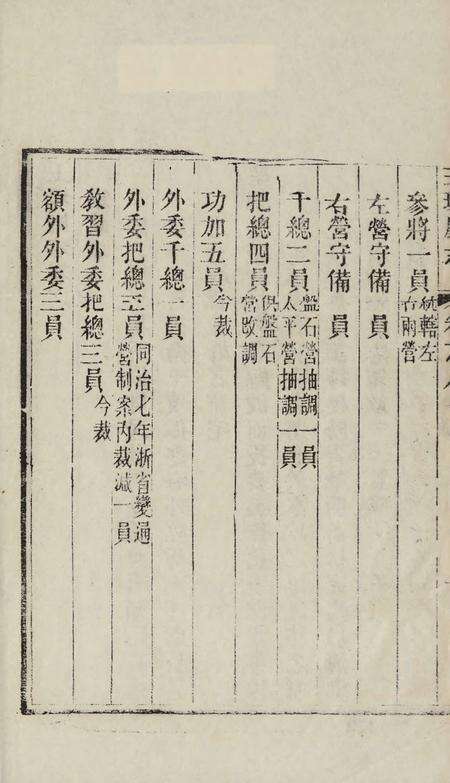 參將一員統轄左右兩營
左營守備一員
右營守備一員
千總二員盤石營抽調一員太平營抽調一員
把總四員俱盤石營改調
功加五員今裁
外委千總一員
外委把總五員同治七年浙省變通營制案內裁減一員
教習外委把總三員今裁
額外外委三員